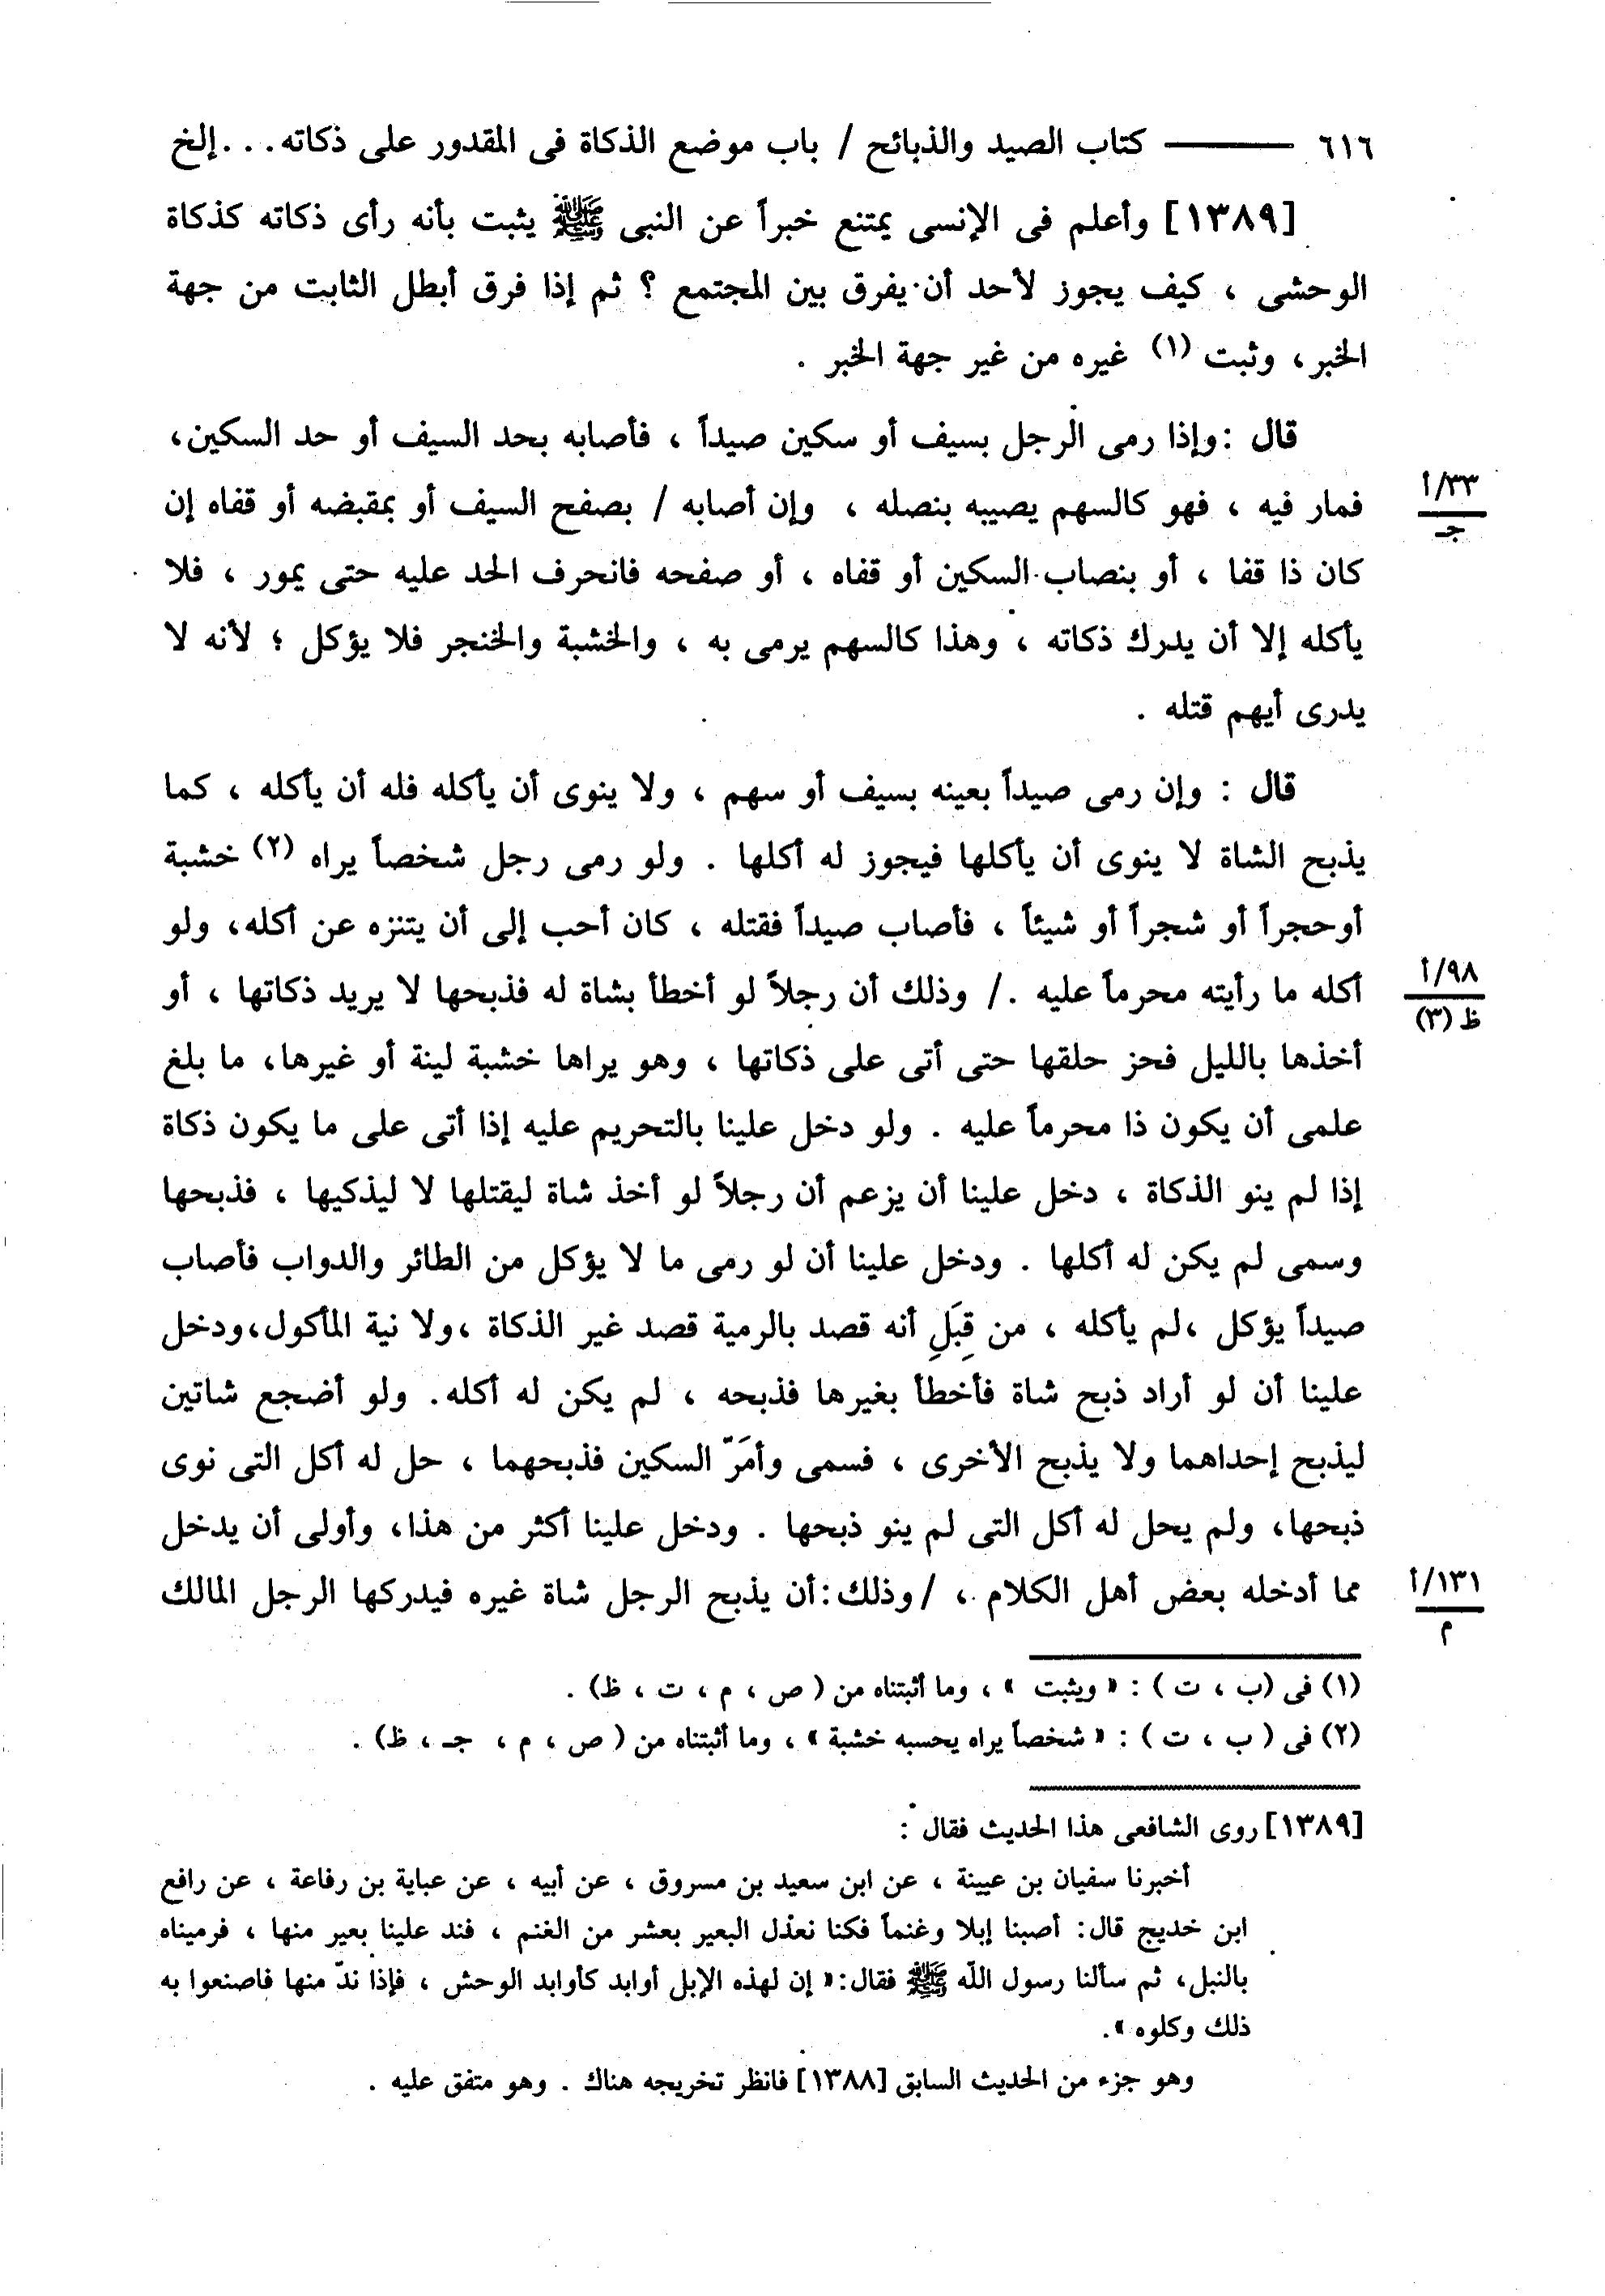 ٦١٦ ——— كتاب الصيد والذبائح / باب موضع الذكاة فى المقدور على ذكاته . . . إلخ
[١٣٨٩] وأعلم فى الإنسى يمتنع خبراً عن النبى ﷺ يثبت بأنه رأى ذكاته كذكاة
الوحشى ، كيف يجوز لأحد أن يفرق بين المجتمع ؟ ثم إذا فرق أبطل الثابت من جهة
الخبر، وثبت (١) غيره من غير جهة الخبر .
قال : وإذا رمى الرجل بسيف أو سكين صيداً ، فأصابه بحد السيف أو حد السكين،
فمار فيه ، فهو كالسهم يصيبه بنصله ، وإن أصابه / بصفح السيف أو بمقبضه أو قفاه إن
٣٣/أ
جـ
كان ذا قفا ، أو بنصاب السكين أو قفاه ، أو صفحه فانحرف الحد عليه حتى يمور ، فلا
يأكله إلا أن يدرك ذكاته ، وهذا كالسهم يرمى به ، والخشبة والخنجر فلا يؤكل ؛ لأنه لا
يدرى أيهم قتله .
قال : وإن رمى صيداً بعينه بسيف أو سهم ، ولا ينوى أن يأكله فله أن يأكله ، كما
يذبح الشاة لا ينوى أن يأكلها فيجوز له أكلها . ولو رمى رجل شخصاً يراه (٢) خشبة
أوحجراً أو شجراً أو شيئاً ، فأصاب صيداً فقتله ، كان أحب إلى أن يتنزه عن أكله، ولو
أكله ما رأيته محرماً عليه ./ وذلك أن رجلاً لو أخطأ بشاة له فذبحها لا يريد ذكاتها ، أو
٩٨/أ
ظ (٣)
أخذها بالليل فحز حلقها حتى أتى على ذكاتها ، وهو يراها خشبة لينة أو غيرها، ما بلغ
علمى أن يكون ذا محرماً عليه . ولو دخل علينا بالتحريم عليه إذا أتى على ما يكون ذكاة
إذا لم ينو الذكاة ، دخل علينا أن يزعم أن رجلاً لو أخذ شاة ليقتلها لا ليذكيها ، فذبحها
وسمى لم يكن له أكلها . ودخل علينا أن لو رمى ما لا يؤكل من الطائر والدواب فأصاب
صيداً يؤكل ،لم يأكله ، من قِبَلِ أنه قصد بالرمية قصد غير الذكاة ،ولا نية المأكول،ودخل
علينا أن لو أراد ذبح شاة فأخطأ بغيرها فذبحه ، لم يكن له أكله. ولو أضجع شاتين
ليذبح إحداهما ولا يذبح الأخرى ، فسمى وأمَرّ السكين فذبحهما ، حل له أكل التى نوى
ذبحها، ولم يحل له أكل التى لم ينو ذبحها . ودخل علينا أكثر من هذا، وأولى أن يدخل
مما أدخله بعض أهل الكلام ، /وذلك:أن يذبح الرجل شاة غيره فيدركها الرجل المالك
١٣١/أ
م
(١) فى (ب ، ت ) : « ويثبت » ، وما أثبتناه من ( ص ، م ، ت ، ظ) .
(٢) فى ( ب ، ت ) : « شخصاً يراه يحسبه خشبة » ، وما أثبتناه من ( ص ، م ، جـ ، ظ) .
[١٣٨٩] روى الشافعى هذا الحديث فقال :
أخبرنا سفيان بن عيينة ، عن ابن سعيد بن مسروق ، عن أبيه ، عن عباية بن رفاعة ، عن رافع
ابن خديج قال: أصبنا إبلا وغنماً فكنا نعدّل البعير بعشر من الغنم ، فند علينا بعير منها ، فرميناه
بالنبل، ثم سألنا رسول الله ﷺ فقال:« إن لهذه الإبل أوابد كأوابد الوحش ، فإذا ندّ منها فاصنعوا به
ذلك وكلوه ».
وهو جزء من الحديث السابق [١٣٨٨] فانظر تخريجه هناك . وهو متفق عليه .